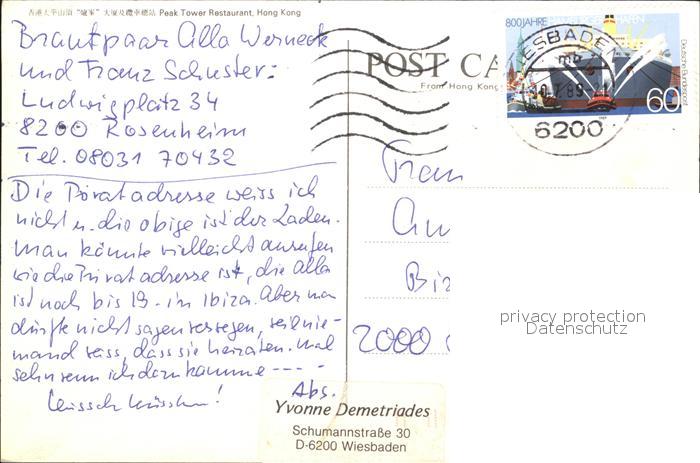 香港太平山頂“爐峯”大厦及纜車總站 Peak Tower Restaurant, Hong Kong
Brautpaar Alla Werneck
und Franz Schuster:
Ludwigplatz 34
8200 Rosenheim
Tel. 08031 70432
Die Privatadresse weiss ich
nicht u. die obige ist der Laden.
Man könnte vielleicht anrufen
wie die Privatadresse ist, die Alla
ist noch bis 19. in Ibiza. Aber man
dürfte nicht sagen weswegen, weil nie-
mand weiss, dass sie heiraten. Mal
sehn wenn ich dazu komme - - - -
Küsschen Küsschen!
POST CA
From Hong Kong
800 JAHRE HAMBURGER HAFEN
Deutsche Bundespost
60
WIESBADEN
mb
10.7.89
6200
Frau
2000
privacy protection
Datenschutz
Abs.
Yvonne Demetriades
Schumannstraße 30
D-6200 Wiesbaden